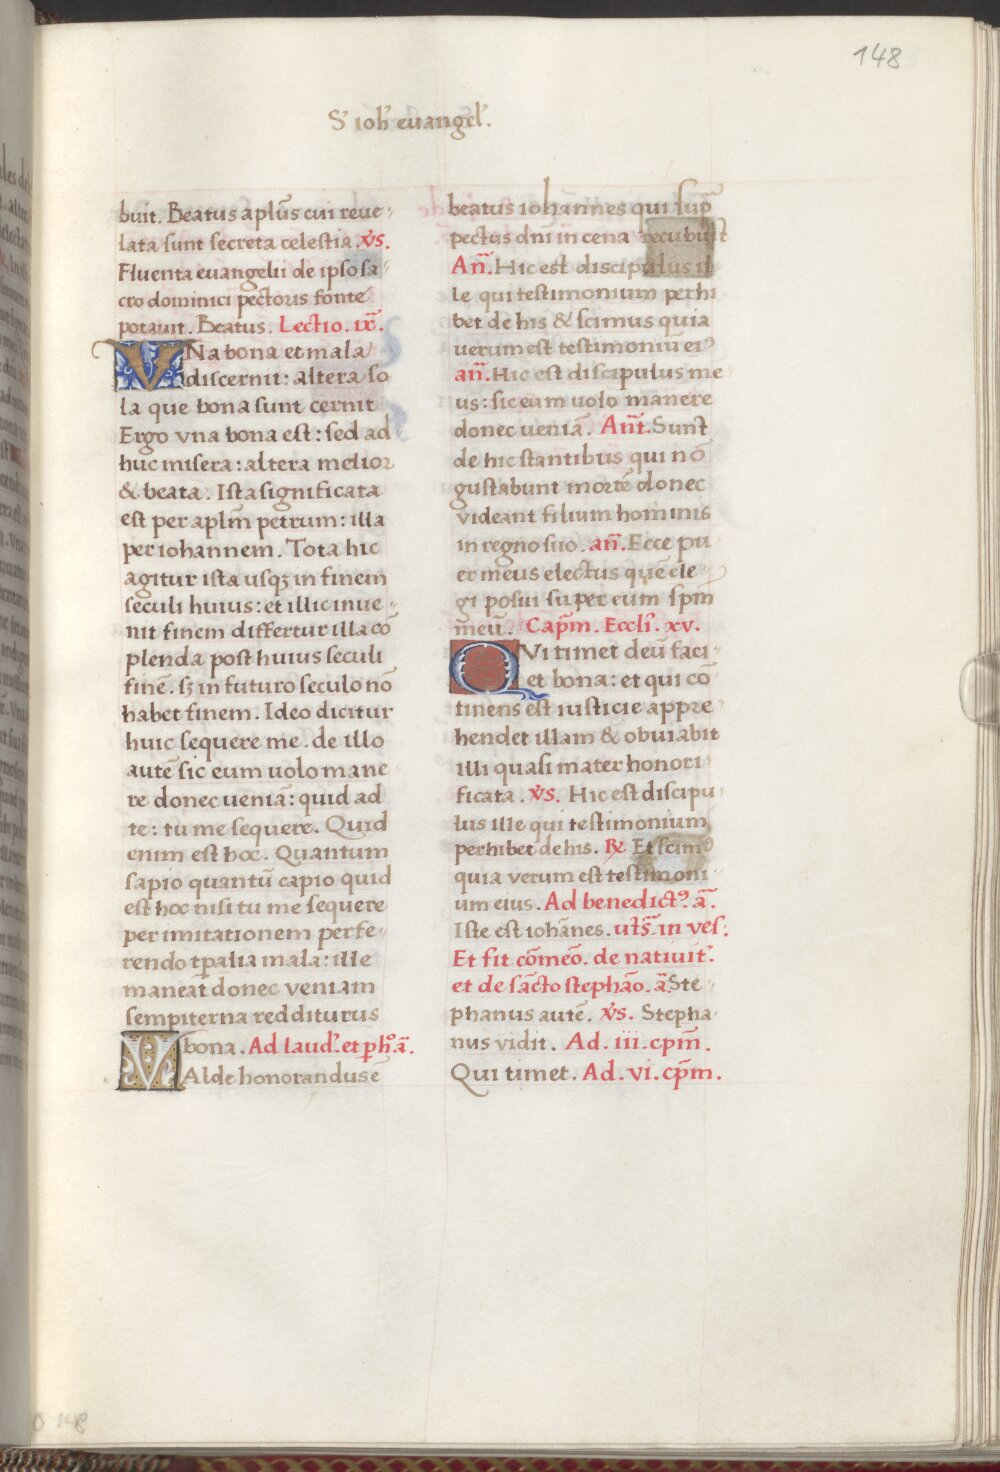 148
S' ioh' evangel'.
buit. Beatus aplūs cui reve-
lata sunt secreta celestia. v̄s.
Fluenta evangelii de ipso sa-
cro dominici pectoris fonte
potavit. Beatus. Lectio. ix̄.
VNa bona et mala
discernit: altera so
la que bona sunt cernit
Ergo vna bona est: sed ad
huc misera: altera melior
& beata. Ista significata
est per aplm̄ petrum: illa
per iohannem. Tota hic
agitur ista usqꝫ in finem
seculi huius: et illic inve-
nit finem differtur illa cō
plenda post huius seculi
finē. sꝫ in futuro seculo nō
habet finem. Ideo dicitur
huic sequere me. de illo
autē sic eum uolo mane
re donec ueniā: quid ad
te: tu me sequere. Quid
enim est hoc. Quantum
sapio quantū capio quid
est hoc nisi tu me sequere
per imitationem perfe-
rendo tp̄alia mala: ille
maneat̄ donec veniam
sempiterna redditurus
bona. Ad laud'. et p̱ho᷒ ā.
VAlde honorandus ē
beatus iohannes qui sup̄
pectus dn̄i in cena recubuit
An̄. Hic est discipulus il
le qui testimonium perhi
bet de his & scimus quia
uerum est testimoniū ei᷒
an̄. Hic est discipulus me-
us: sic eum uolo manere
donec ueniā. Ant̄. Sunt
de hic stantibus qui nō
gustabunt mortē donec
videant filium hominis
in regno suo. an̄. Ecce pu
er meus electus quē ele-
gi posui super eum sp̄m
meū. Cap̄m. Eccli'. xv.
QVi timet deū faci-
et bona: et qui cō
tinens est iusticie appre-
hendet illam & obuiabit
illi quasi mater honori-
ficata. v̄s. Hic est discipu
lus ille qui testimonium
perhibet de his. ℟ Et scim᷒
quia verum est testimoni-
um eius. Ad benedict᷒. ā.
Iste est iohānes. ut s̄. in ves'.
Et fit cōmeō. de nativit'.
et de sācto stephāo. ā. Ste-
phanus autē. v̄s. Stepha-
nus vidit. Ad. iii. cpm̄.
Qui timet. Ad. vi. cp̄m.